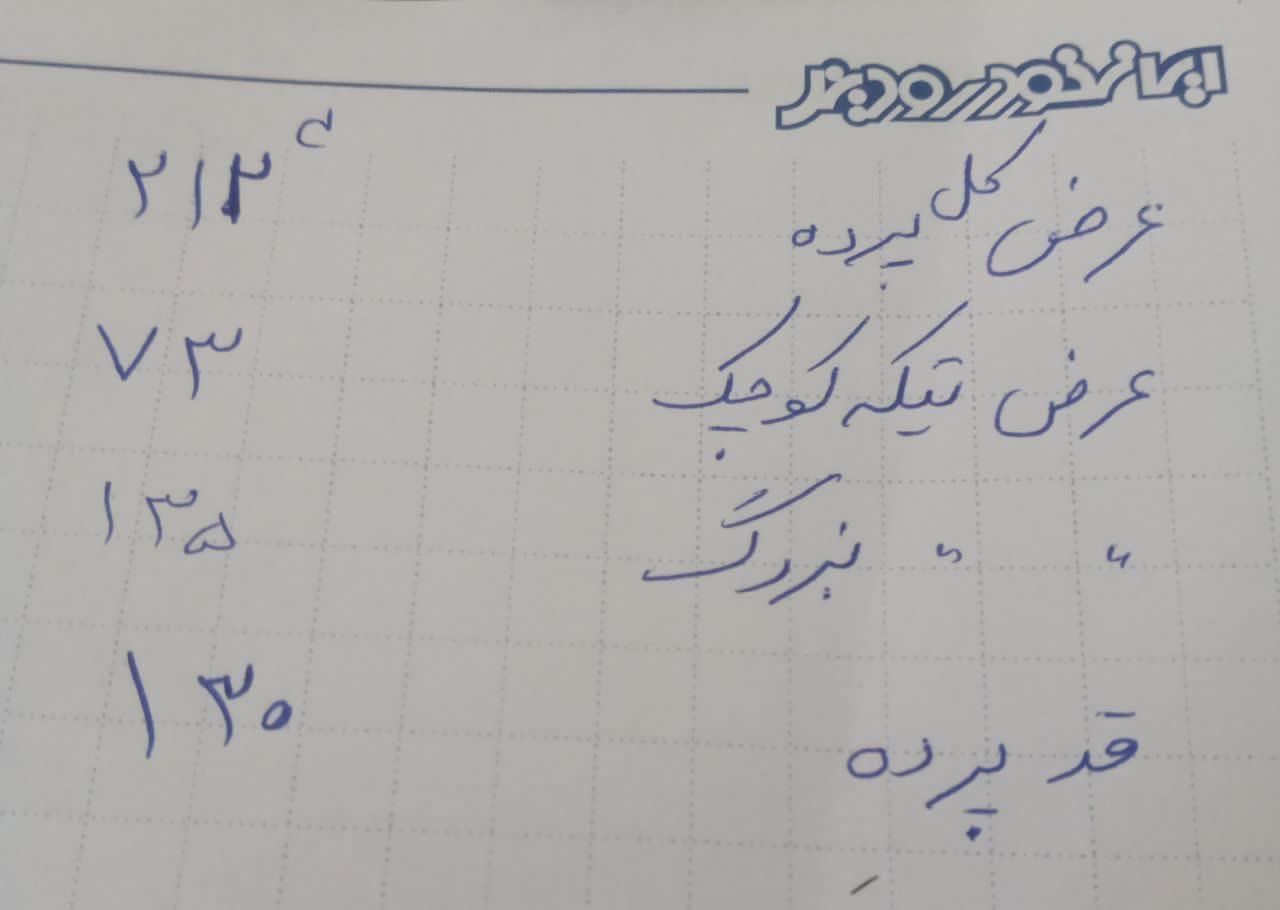 ایران‌خودرو دیزل
عرض کل پرده ۲۱۳
عرض تیکه کوچک ۷۳
" " بزرگ ۱۳۵
قد پرده ۱۳۰